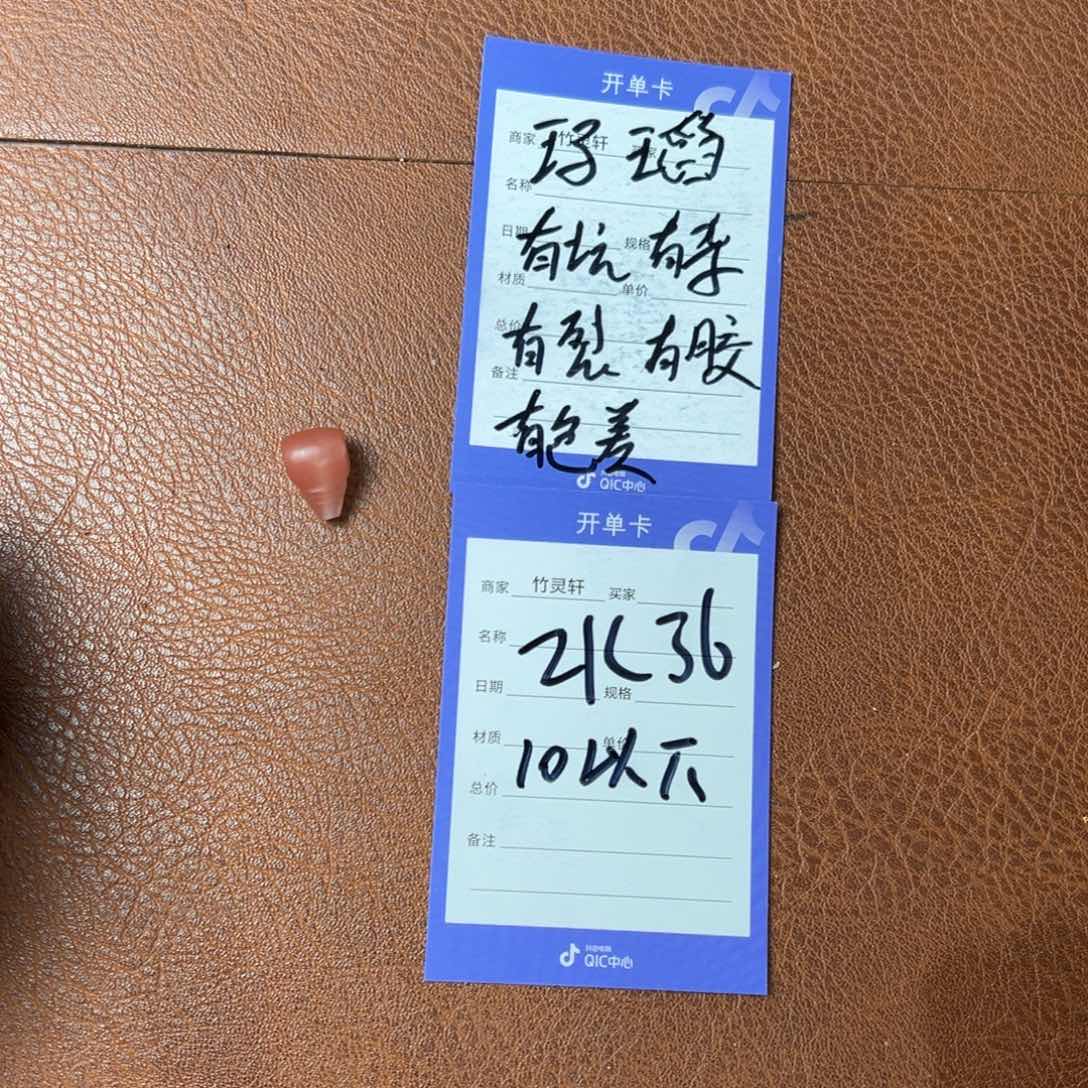 开单卡
商家 竹灵轩 买家
玛瑙
名称
日期 规格
有坑 有
材质 单价
总价
有裂 有胶
备注
有色差
QIC中心
开单卡
商家 竹灵轩 买家
名称
36
日期 规格
材质 单价
10以下
总价
备注
抖音电商
QIC中心